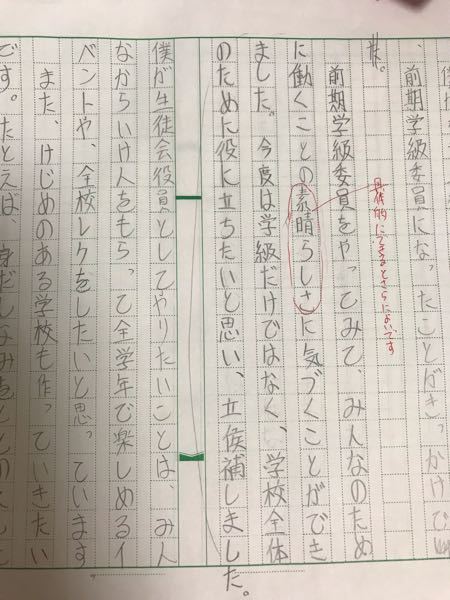 前期学級委員になったことがきっかけで
す。
具体的にできるとさらによいです
前期学級委員をやってみて、みんなのため
に働くことの素晴らしさに気づくことができ
ました。今度は学級だけではなく、学校全体
のために役に立ちたいと思い、立候補しました。
僕が生徒会役員としてやりたいことは、みん
なからいけ人をもらって全学年で楽しめるイ
ベントや、全校レクをしたいと思っています
また、けじめのある学校も作っていきたい
です。たとえば、身だしなみをととのえ